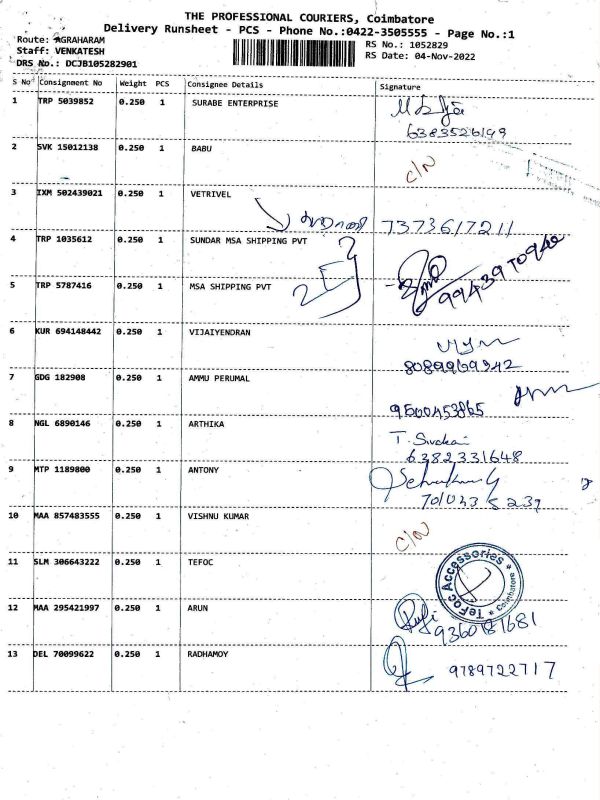 THE PROFESSIONAL COURIERS, Coimbatore
Delivery Runsheet - PCS - Phone No.:0422-3505555 - Page No.:1
Route: AGRAHARAM
Staff: VENKATESH
DRS No.: DCJB105282901
RS No.: 1052829
RS Date: 04-Nov-2022
S No Consignment No Weight PCS Consignee Details Signature
1 TRP 5039852 0.250 1 SURABE ENTERPRISE
6383526199
2 SVK 15012138 0.250 1 BABU C/N
3 IXM 502439021 0.250 1 VETRIVEL
7373617211
4 TRP 1035612 0.250 1 SUNDAR MSA SHIPPING PVT
5 TRP 5787416 0.250 1 MSA SHIPPING PVT
2
6 KUR 694148442 0.250 1 VIJAIYENDRAN
8089969342
7 GDG 182908 0.250 1 AMMU PERUMAL
9500453865
8 NGL 6890146 0.250 1 ARTHIKA
6382331648
9 MTP 1189800 0.250 1 ANTONY
10 MAA 857483555 0.250 1 VISHNU KUMAR C/N
11 SLM 306643222 0.250 1 TEFOC
TeFoc Accessories * Coimbatore *
12 MAA 295421997 0.250 1 ARUN
9360181681
13 DEL 70099622 0.250 1 RADHAMOY
9789722717